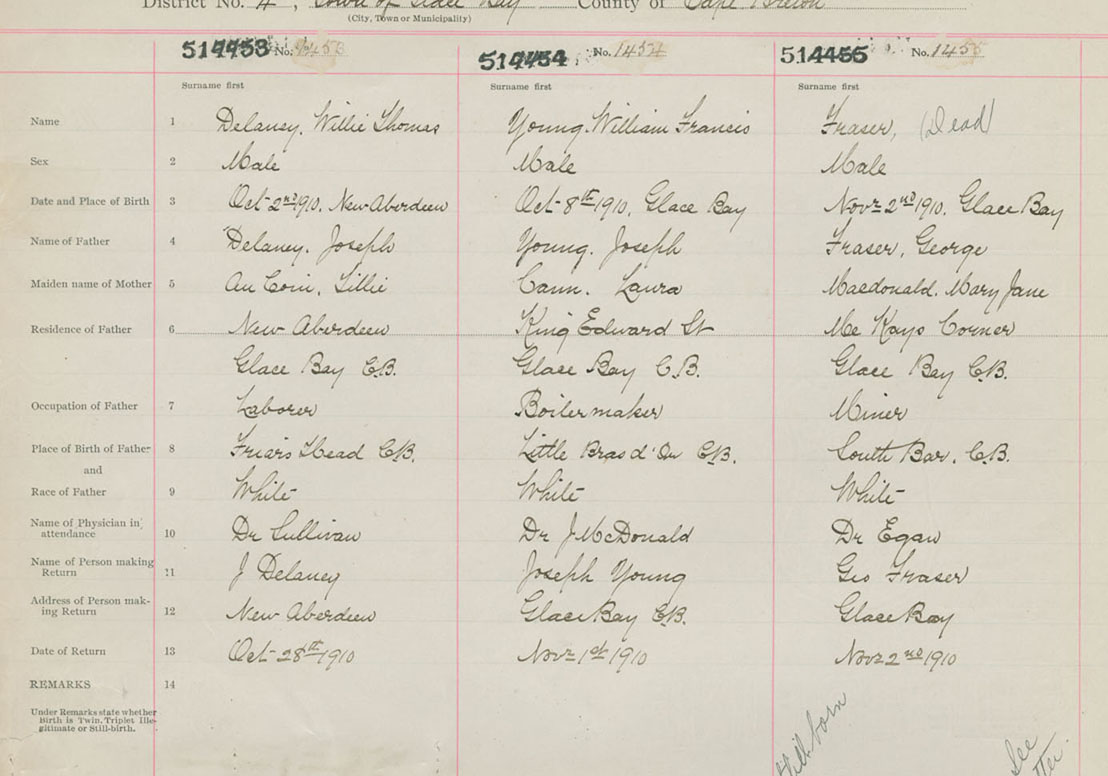 District No. 4, Town of Glace Bay County of Cape Breton
(City, Town or Municipality)
514453 No. 1453 514454 No. 1454 514455 No. 1455
Surname first Surname first Surname first
Name 1 Delaney, Willie Thomas Young. William Francis Fraser, (Dead)
Sex 2 Male Male Male
Date and Place of Birth 3 Oct- 2nd 1910, New Aberdeen Oct- 8th 1910, Glace Bay Novr 2nd 1910. Glace Bay
Name of Father 4 Delaney. Joseph Young. Joseph Fraser, George
Maiden name of Mother 5 Au Coin, Lillie Cann. Laura Macdonald. Mary Jane
Residence of Father 6 New Aberdeen King Edward St Mc Kays Corner
Glace Bay C.B. Glace Bay C.B. Glace Bay C.B.
Occupation of Father 7 Laborer Boilermaker Miner
Place of Birth of Father 8 Friars Head C.B. Little Bras d'Or C.B. South Bar. C.B.
and
Race of Father 9 White White White
Name of Physician in
attendance 10 Dr Sullivan Dr J McDonald Dr Egan
Name of Person making
Return 11 J Delaney Joseph Young Geo Fraser
Address of Person mak-
ing Return 12 New Aberdeen Glace Bay C.B. Glace Bay
Date of Return 13 Oct- 28th 1910 Novr 1st 1910 Novr 2nd 1910
REMARKS 14
Under Remarks state whether
Birth is Twin, Triplet Ille-
gitimate or Still-birth.
Stillborn See